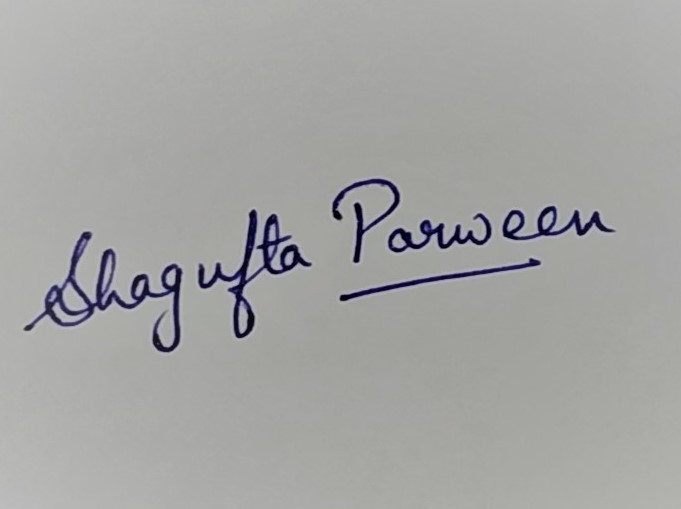 Shagufta Parween